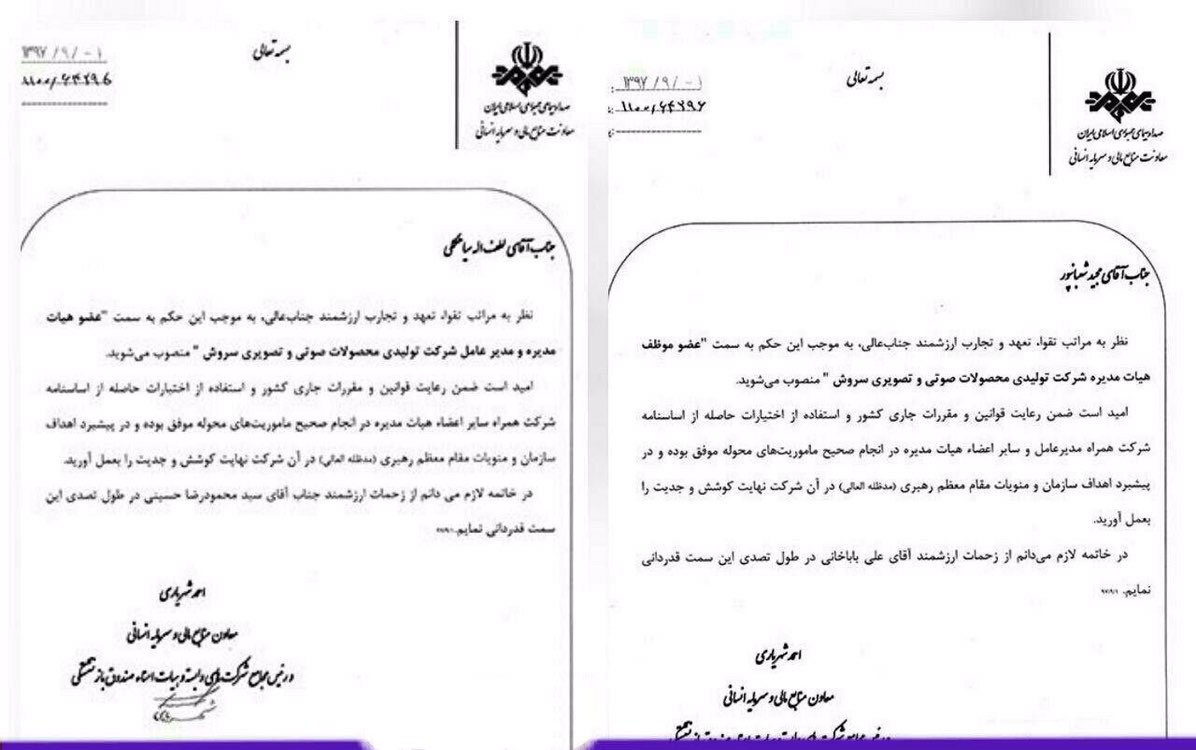 بسمه تعالی
۱۳۹۷/۹/۰۱
۱۱۰۰/۶۴۲۹۶
صدا و سیمای جمهوری اسلامی ایران
معاونت منابع مالی و سرمایه انسانی
جناب آقای مجید شعبانپور
نظر به مراتب تقوا، تعهد و تجارب ارزشمند جنابعالی، به موجب این حکم به سمت "عضو موظف
هیات مدیره شرکت تولیدی محصولات صوتی و تصویری سروش " منصوب می‌شوید.
امید است ضمن رعایت قوانین و مقررات جاری کشور و استفاده از اختیارات حاصله از اساسنامه
شرکت همراه مدیرعامل و سایر اعضاء هیات مدیره در انجام صحیح ماموریت‌های محوله موفق بوده و در
پیشبرد اهداف سازمان و منویات مقام معظم رهبری (مدظله العالی) در آن شرکت نهایت کوشش و جدیت را
بعمل آورید.
در خاتمه لازم می‌دانم از زحمات ارزشمند آقای علی باباخانی در طول تصدی این سمت قدردانی
نمایم.
احمد شهریاری
معاون منابع مالی و سرمایه انسانی
بسمه تعالی
۱۳۹۷/۹/۰۱
۱۱۰۰/۶۴۲۹۶
صدا و سیمای جمهوری اسلامی ایران
معاونت منابع مالی و سرمایه انسانی
جناب آقای لطف اله سیاهکلی
نظر به مراتب تقوا، تعهد و تجارب ارزشمند جناب‌عالی، به موجب این حکم به سمت "عضو هیات
مدیره و مدیر عامل شرکت تولیدی محصولات صوتی و تصویری سروش " منصوب می‌شوید.
امید است ضمن رعایت قوانین و مقررات جاری کشور و استفاده از اختیارات حاصله از اساسنامه
شرکت همراه سایر اعضاء هیات مدیره در انجام صحیح ماموریت‌های محوله موفق بوده و در پیشبرد اهداف
سازمان و منویات مقام معظم رهبری (مدظله العالی) در آن شرکت نهایت کوشش و جدیت را بعمل آورید.
در خاتمه لازم می دانم از زحمات ارزشمند جناب آقای سید محمودرضا حسینی در طول تصدی این
سمت قدردانی نمایم.
احمد شهریاری
معاون منابع مالی و سرمایه انسانی
و رئیس مجامع شرکت‌های وابسته و هیات امناء صندوق بازنشستگی